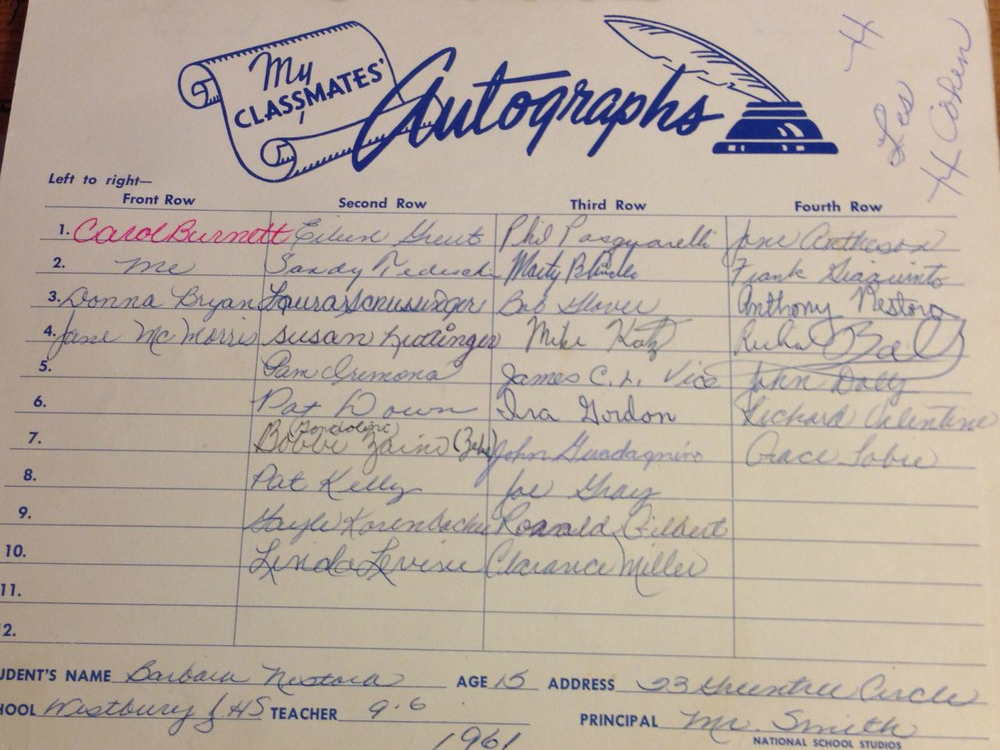 My
CLASSMATES'
Autographs
Les
Cohen
Left to right—
Front Row Second Row Third Row Fourth Row
1. Carol Burnett Eileen Phil Pasquarelli Jane
2. me Sandy Tedesch Marty Frank Giaquinto
3. Donna Bryan Laura Bob Glover Anthony Nestora
4. Jane McMorris Susan Mike Katz Richard Ball
5. Pam Cremona James C. L. Vice John Daly
6. Pat Down Ira Gordon Richard Valentine
(Gondoleic)
7. Bobbi Zaino John Guadagnino Grace
8. Pat Kelly Joe Gray
9. Gayle Ronald Gilbert
10. Linda Levine Clarance Miller
11.
2.
UDENT'S NAME Barbara Nestora AGE 15 ADDRESS 23 Greentree Circle
HOOL Westbury JHS TEACHER 9-6 PRINCIPAL Mr. Smith
1961
NATIONAL SCHOOL STUDIOS